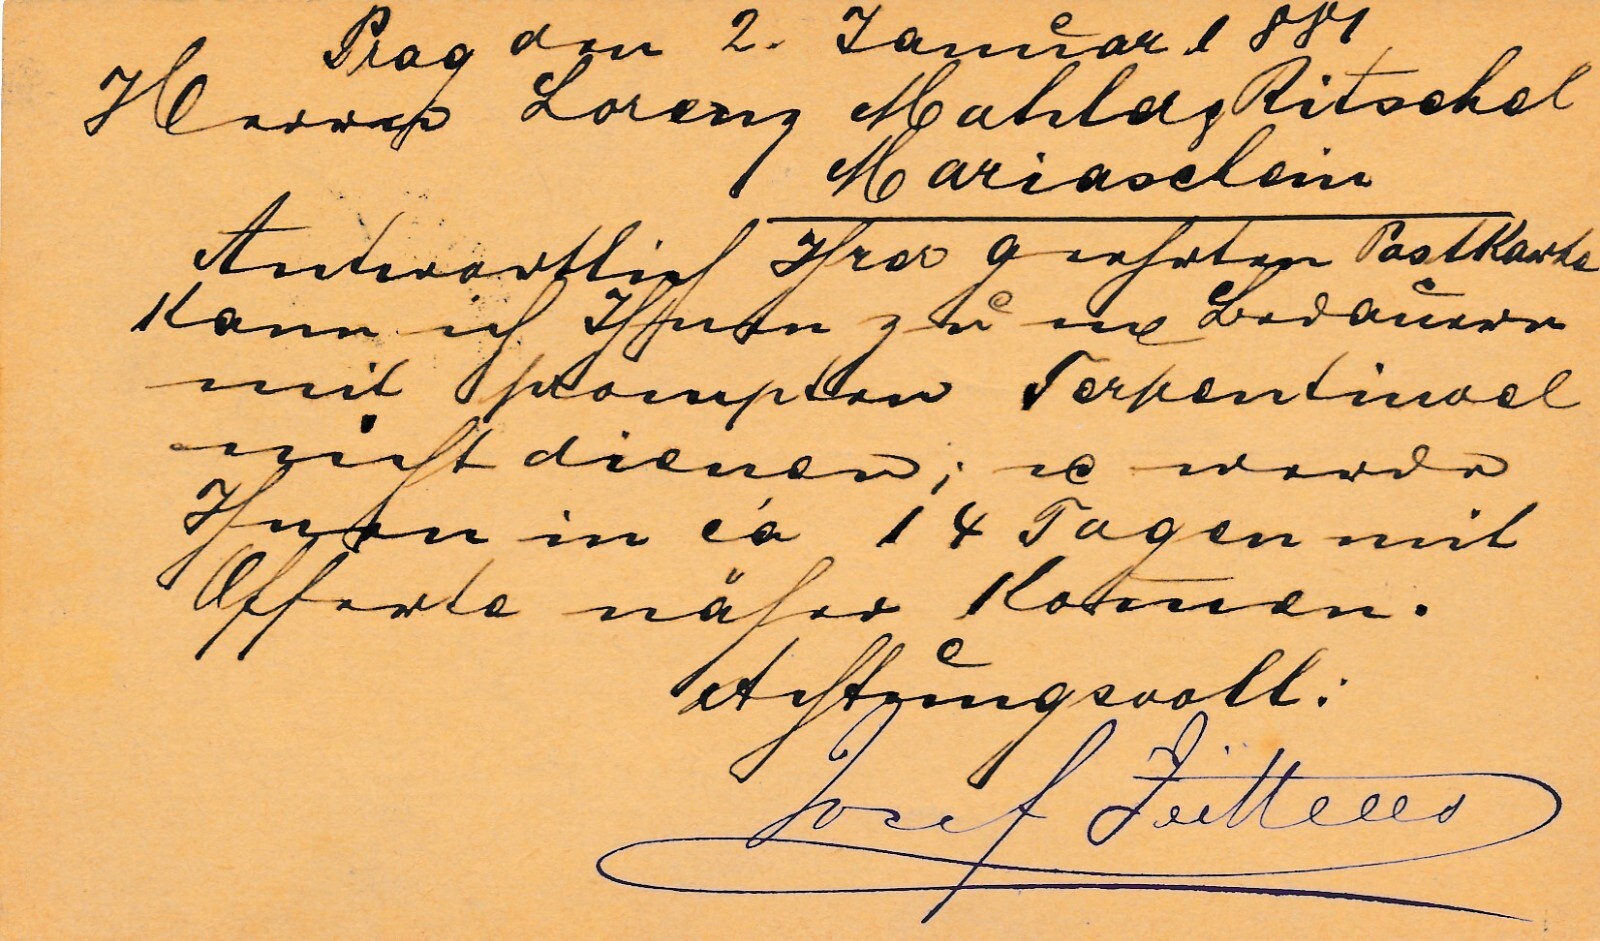 Prag den 2. Januar 1881
Herrn Lorenz Ritschel
Mariaschein
Antwortlich Ihrer geehrten Postkarte
kann ich Ihnen zu m Bedauern
mit promptem Terpentinoel
nicht dienen; u werde
Ihnen in ca 14 Tagen mit
Offerte näher kom̅en.
Achtungsvoll:
Josef